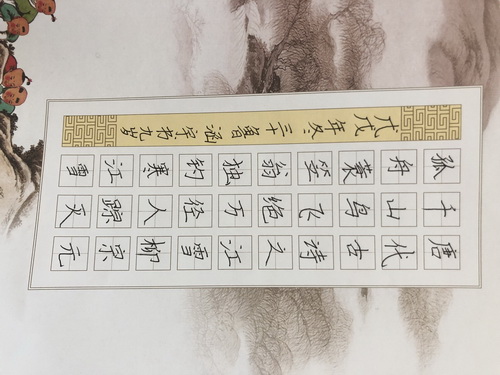 唐代古诗之江雪柳宗元
千山鸟飞绝万径人踪灭
孤舟蓑笠翁独钓寒江雪
戊戌年冬二十鲁涵宇书九岁